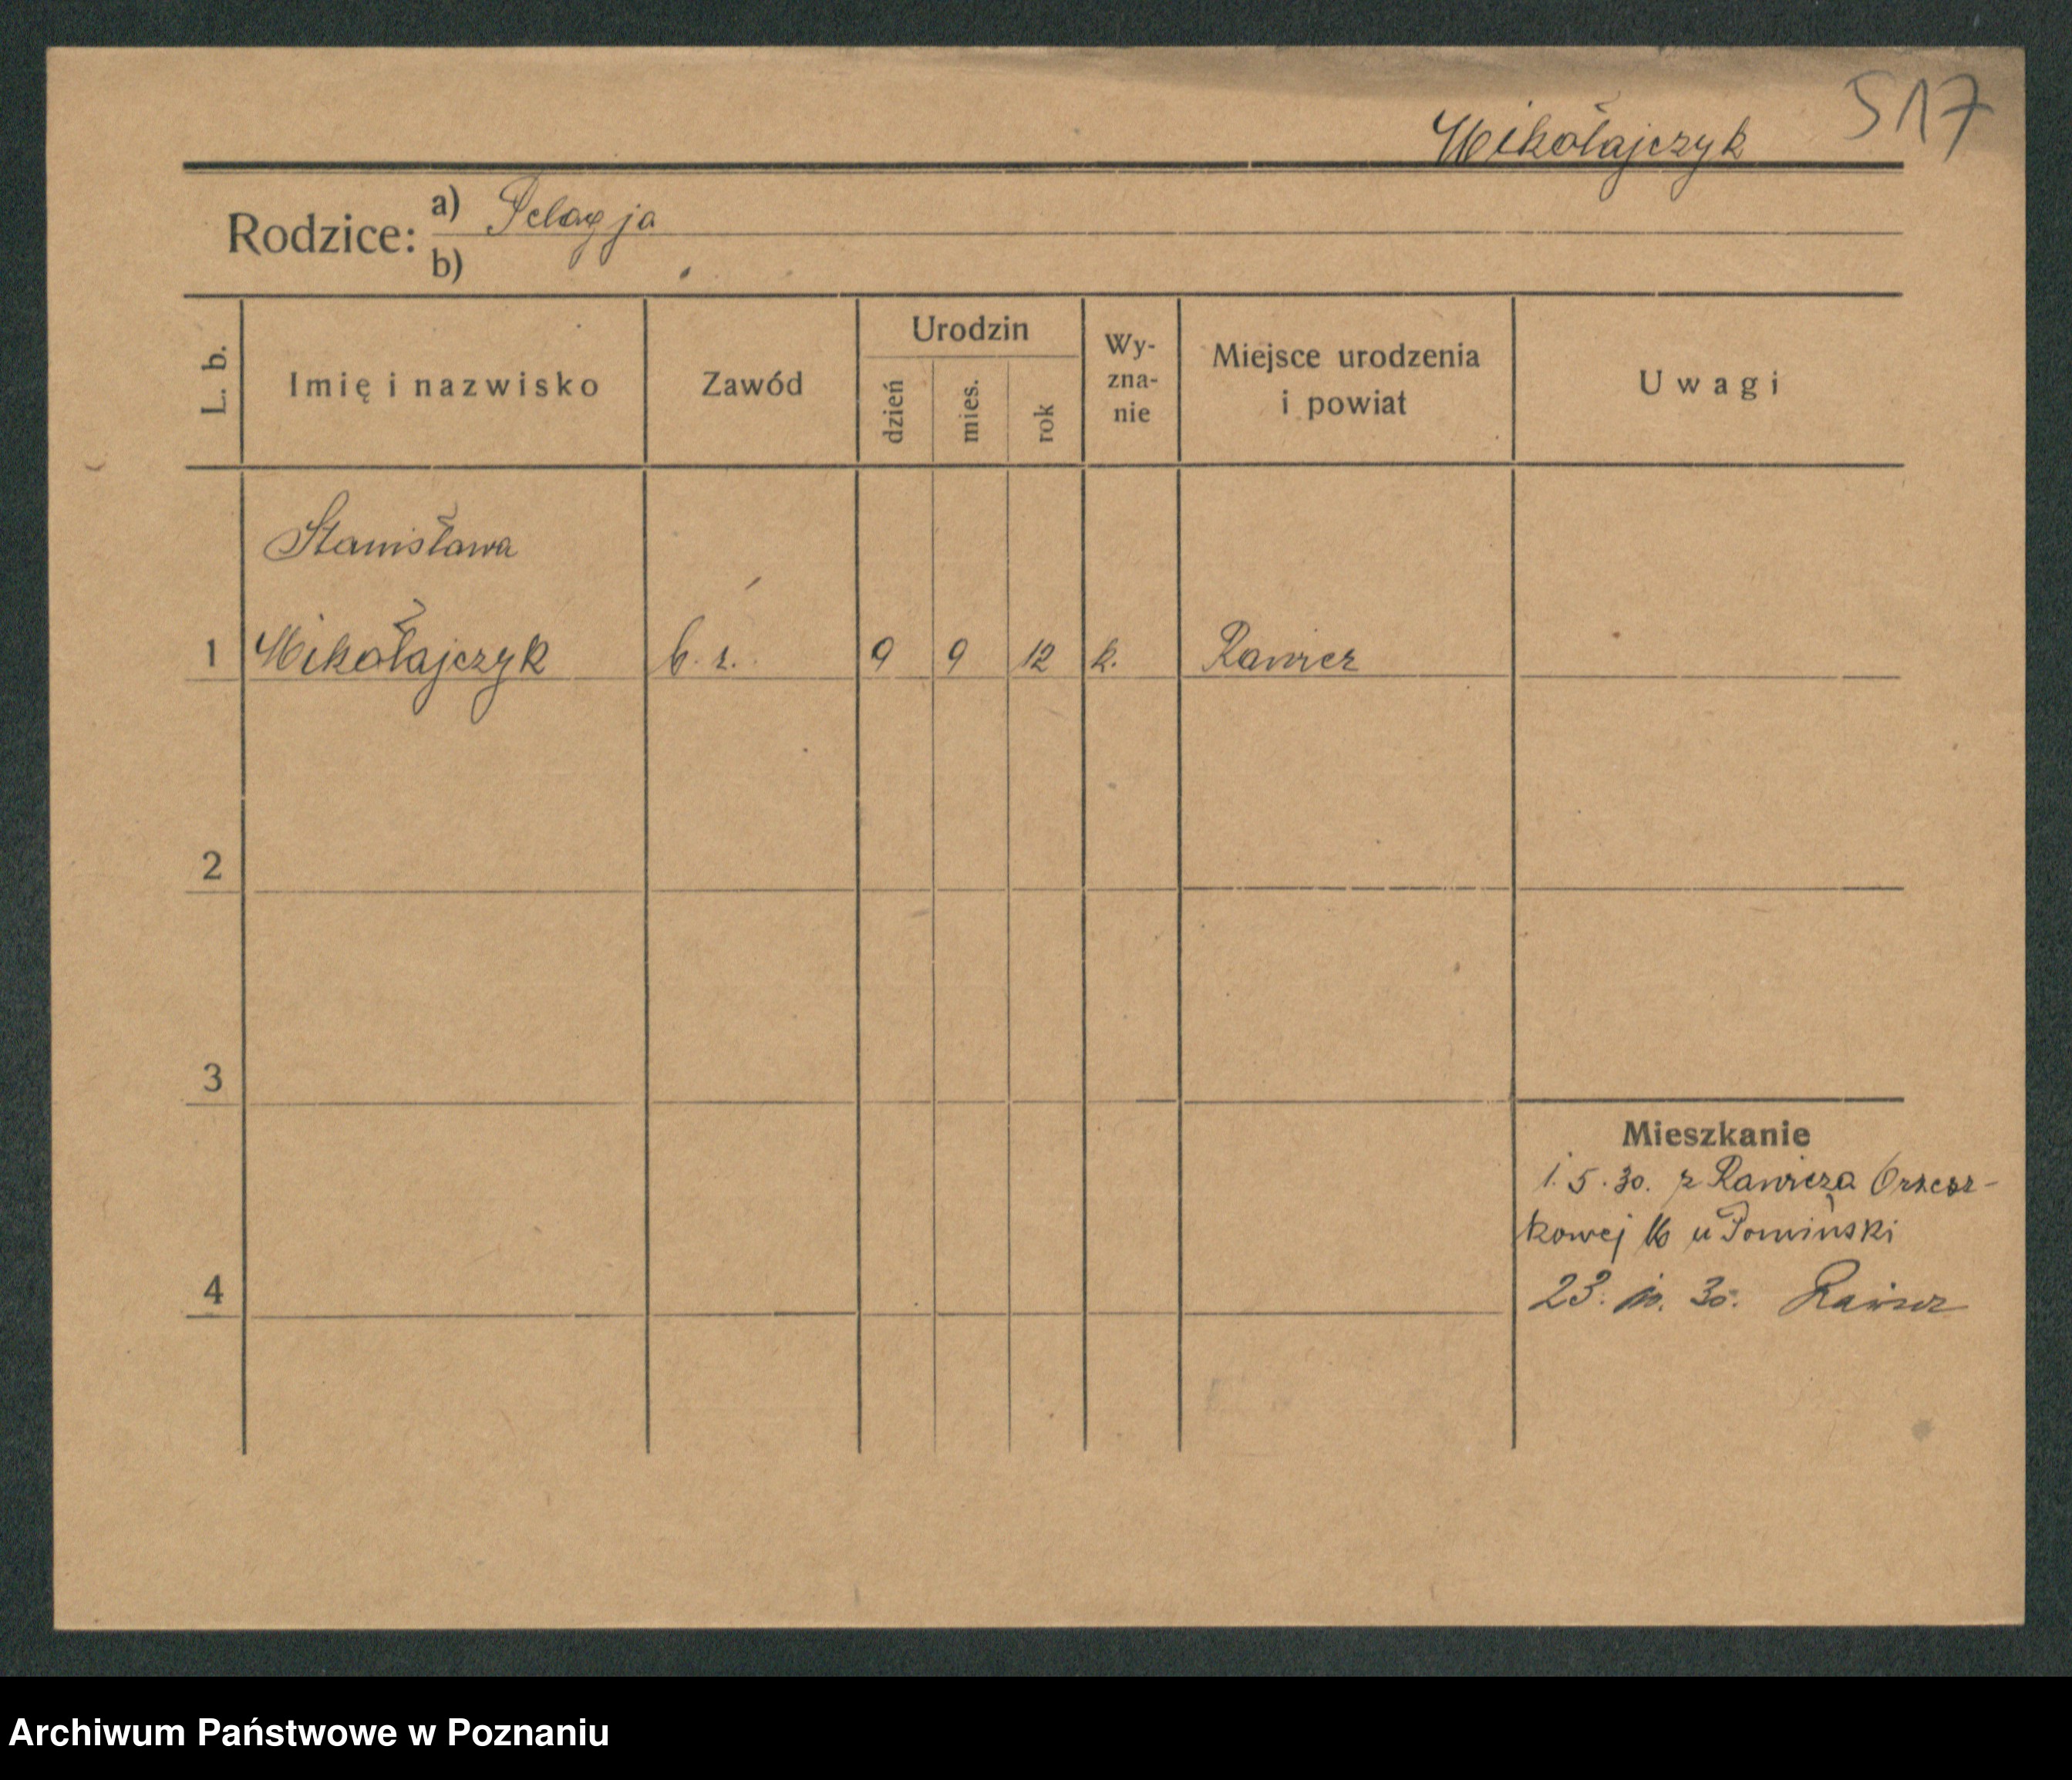 517
Mikołajczyk
Rodzice: a) Pelagja
b)
L. b. Imię i nazwisko Zawód Urodzin dzień mies. rok Wy-zna-nie Miejsce urodzenia i powiat Uwagi
Stanisława
1 Mikołajczyk b. z. 9 9 12 k. Rawicz
2
3
Mieszkanie
1. 5. 30. z Rawicza Orzesz-
kowej 16 u
4
23. 10. 30. Rawicz
Archiwum Państwowe w Poznaniu